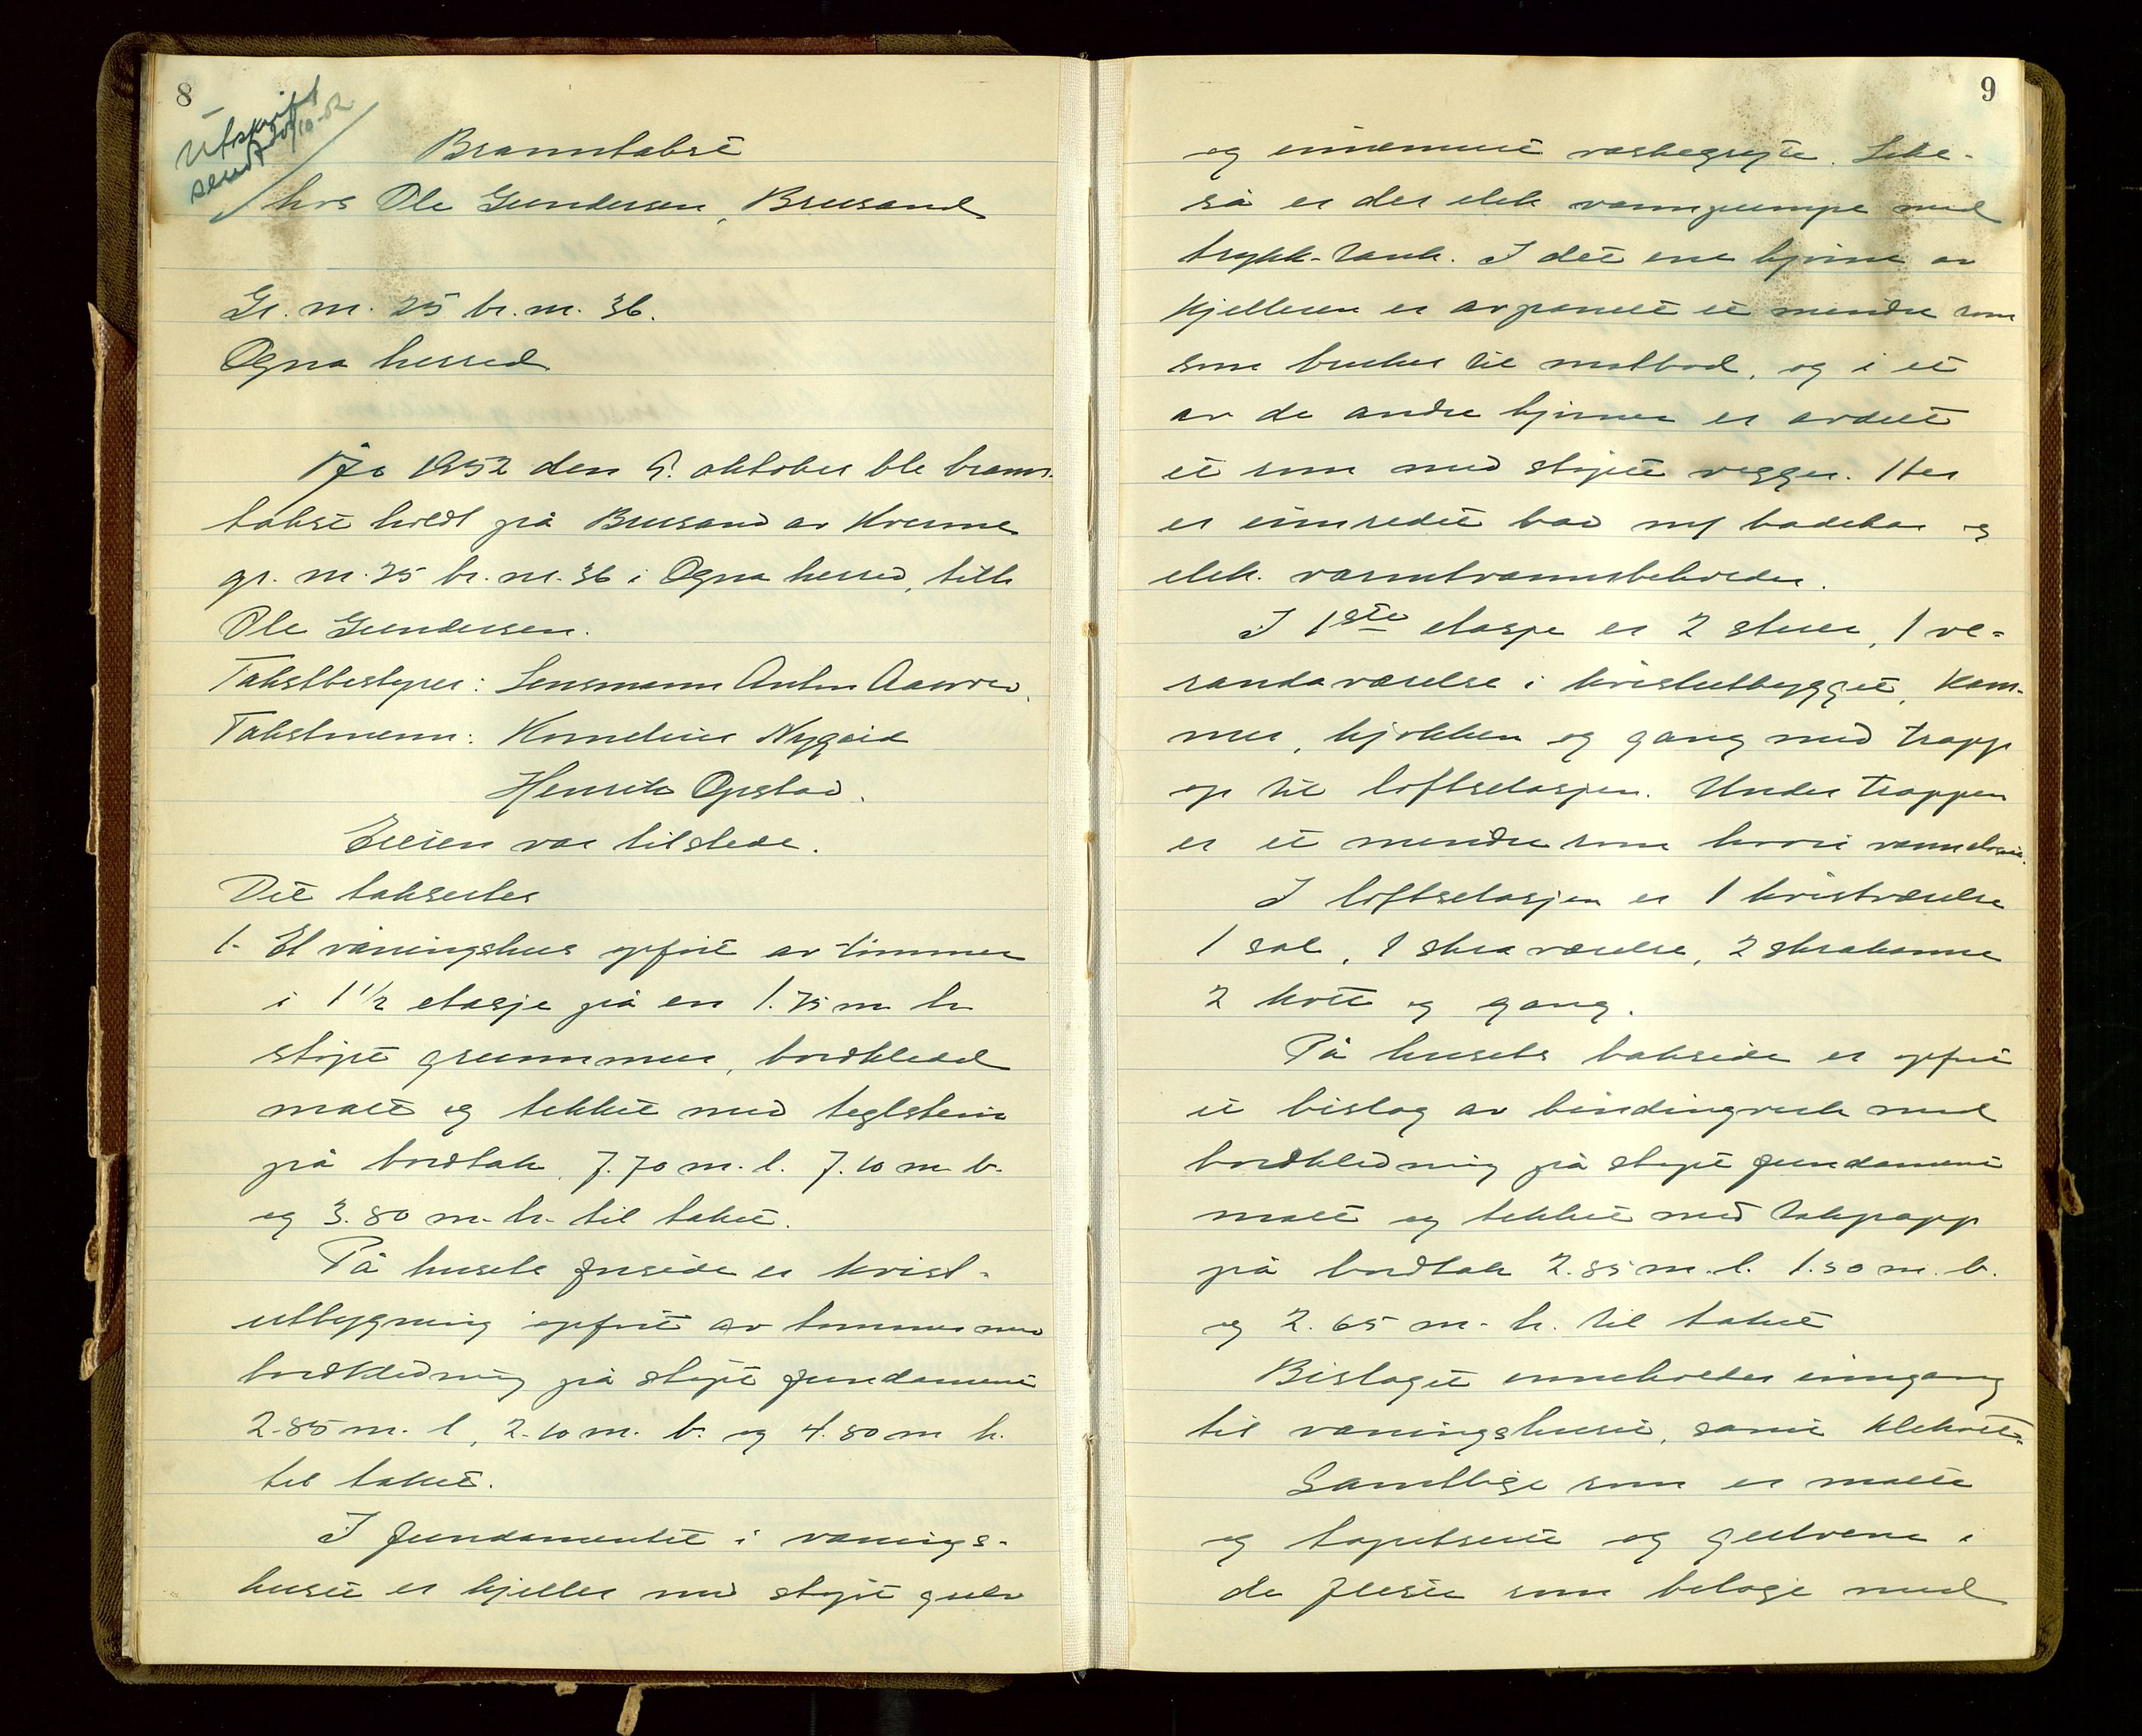 8
Utskrift
sendt 20/10-52
Branntakst
hos Ole Gundersen, Brusand
Gr. nr. 25 br. nr. 36.
Ogna herred
År 1952 den 9. oktober ble brann-
takst holdt på Brusand av
gr. nr. 25 br. nr. 36 i Ogna herred, tilh.
Ole Gundersen.
Takstbestyrer: Lensmann Anton
Takstmenn: Kornelius Nygård
Henrik Opstad.
Eieren var tilstede.
Det taksertes
1. Et våningshus opført av tømmer
i 1 1/2 etasje på en 1.75 m h
støpt grunnmur, bordkledd
malt og tekket med teglstein
på bordtak, 7.70 m. l. 7.10 m b.
og 3.80 m. h. til taket.
På husets forside er kvist-
utbygning opført av tømmer med
bordkledning på støpt fundament
2.85 m. l, 2.10 m. b. og 4.80 m h.
til taket.
I fundamentet i vånings-
huset er kjeller med støpt gulv
9
og innemurt vaskegryte. Like-
så er der elek vannpumpe med
trykk-tank. I det ene hjørne av
kjelleren er avpanelt et mindre rom
som brukes til matbod, og i et
av de andre hjørner er avdelt
et rom med støpte vegger. Her
er innredet bad m/ badekar og
elek. varmtvannsbeholder.
I 1ste etasje er 2 stuer, 1 ve-
randaværelse i kvistutbygget, kam-
mer, kjøkken og gang med trapp
op til loftsetasjen. Under trappen
er et mindre rom hvori vannklosett.
I loftsetasjen er 1 kvistværelse
1 sal, 1 skraværelse, 2 skrakamre
2 kott og gang.
På husets bakside er opført
et bislag av bindingverk med
bordkledning på støpt fundament
malt og tekket med takpapp
på bordtak 2.85 m. l. 1.50 m. b.
og 2.65 m. h. til taket
Bislaget inneholder inngang
til våningshuset, samt klekott.
Samtlige rom er malte
og tapetserte og gulvene i
de fleste rom belagt med